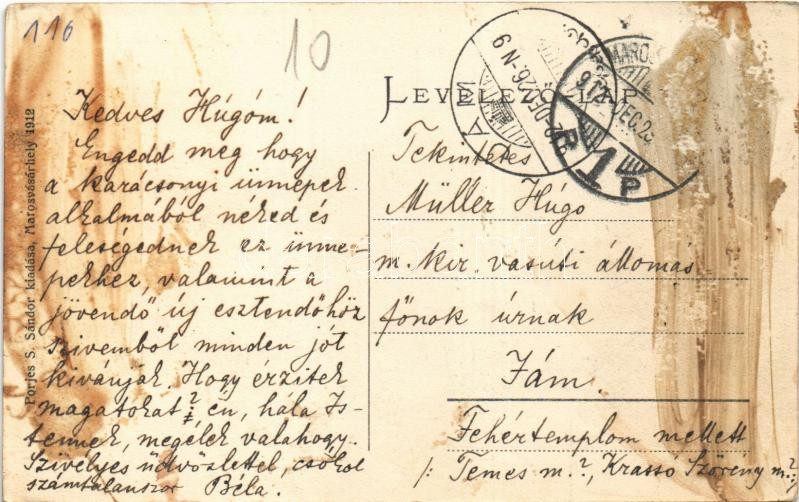 116
10
Porjes S. Sándor kiadása, Marosvásárhely 1912
Kedves Húgóm!
Engedd meg hogy
a karácsonyi ünnepek
alkalmából néked és
feleségednek ez ünne-
pekhez, valamint a
jövendő új esztendőhöz
szivemből minden jót
kivánjak. Hogy érzitek
magatokat? én, hála Is-
tennek, megélek valahogy.
Szívélyes üdvözlettel, csókol
számtalanszor Béla.
LEVELEZŐ-LAP
912 DEC. 25
1 P
Tekintetes
Müller Húgó
m. kir. vasúti állomás
főnök úrnak
Jám.
Fehértemplom mellett
/: Temes m.?, Krassó Szörény m.? :/